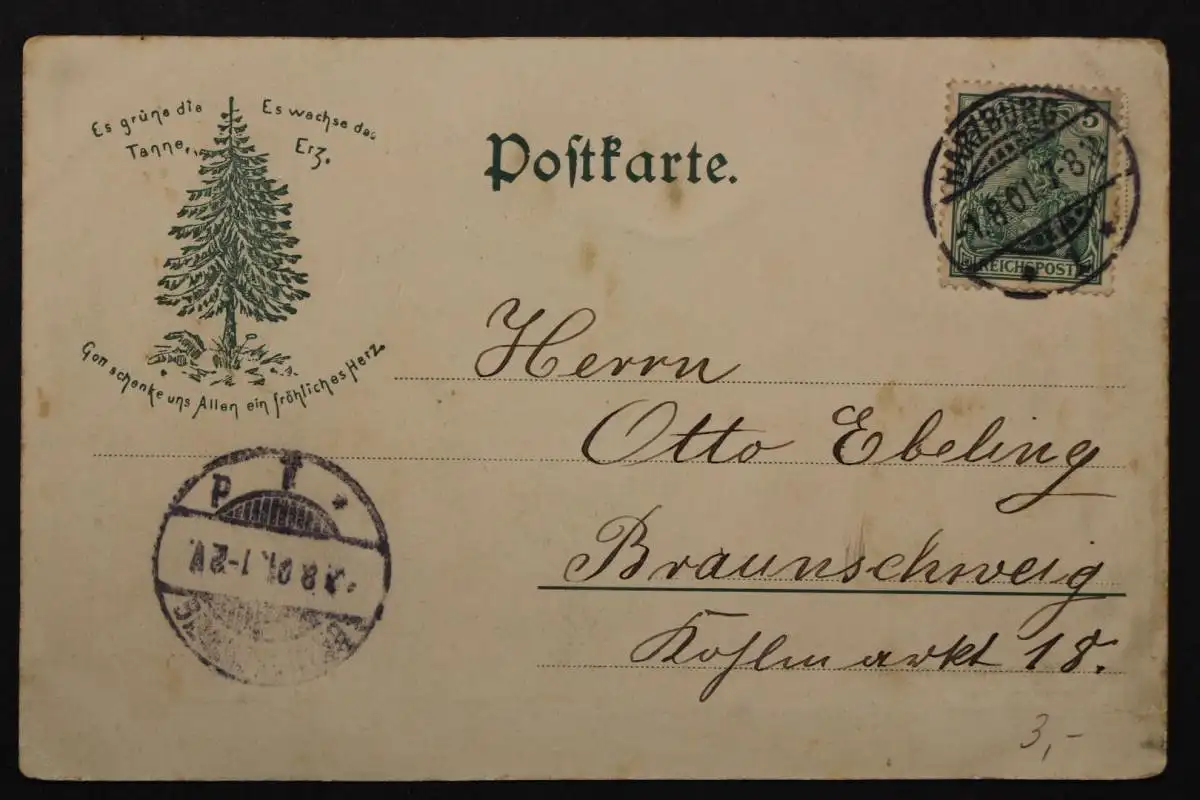 Es grüne die Es wachse das
Tanne, Erz.
Gott schenke uns Allen ein fröhliches Herz.
Postkarte.
HARZBURG
1.8.01. 7-8
5
REICHSPOST
Herrn
Otto Ebeling
Braunschweig
Kohlmarkt 18.
.8.01. 1-2 V.
3,-